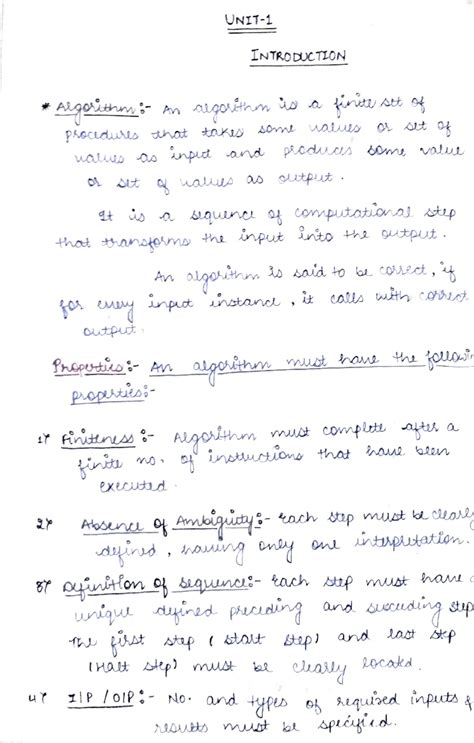 UNIT-1
INTRODUCTION
* Algorithm :- An algorithm is a finite set of
procedures that takes some values or set of
values as input and produces some value
or set of values as output.
It is a sequence of computational step
that transforms the input into the output.
An algorithm is said to be correct, if
for every input instance, it calls with correct
output.
Properties :- An algorithm must have the followin
properties:-
1) Finiteness :- Algorithm must complete after a
finite no. of instructions that have been
executed.
2) Absence of Ambiguity :- Each step must be clearly
defined, having only one interpretation.
3) Definition of sequence:- Each step must have a
unique defined preceding and succeding step
the first step (start step) and last step
(Halt step) must be clearly located.
4) I/P / O/P :- No. and types of required inputs &
results must be specified.